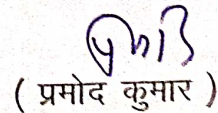 ( प्रमोद कुमार )